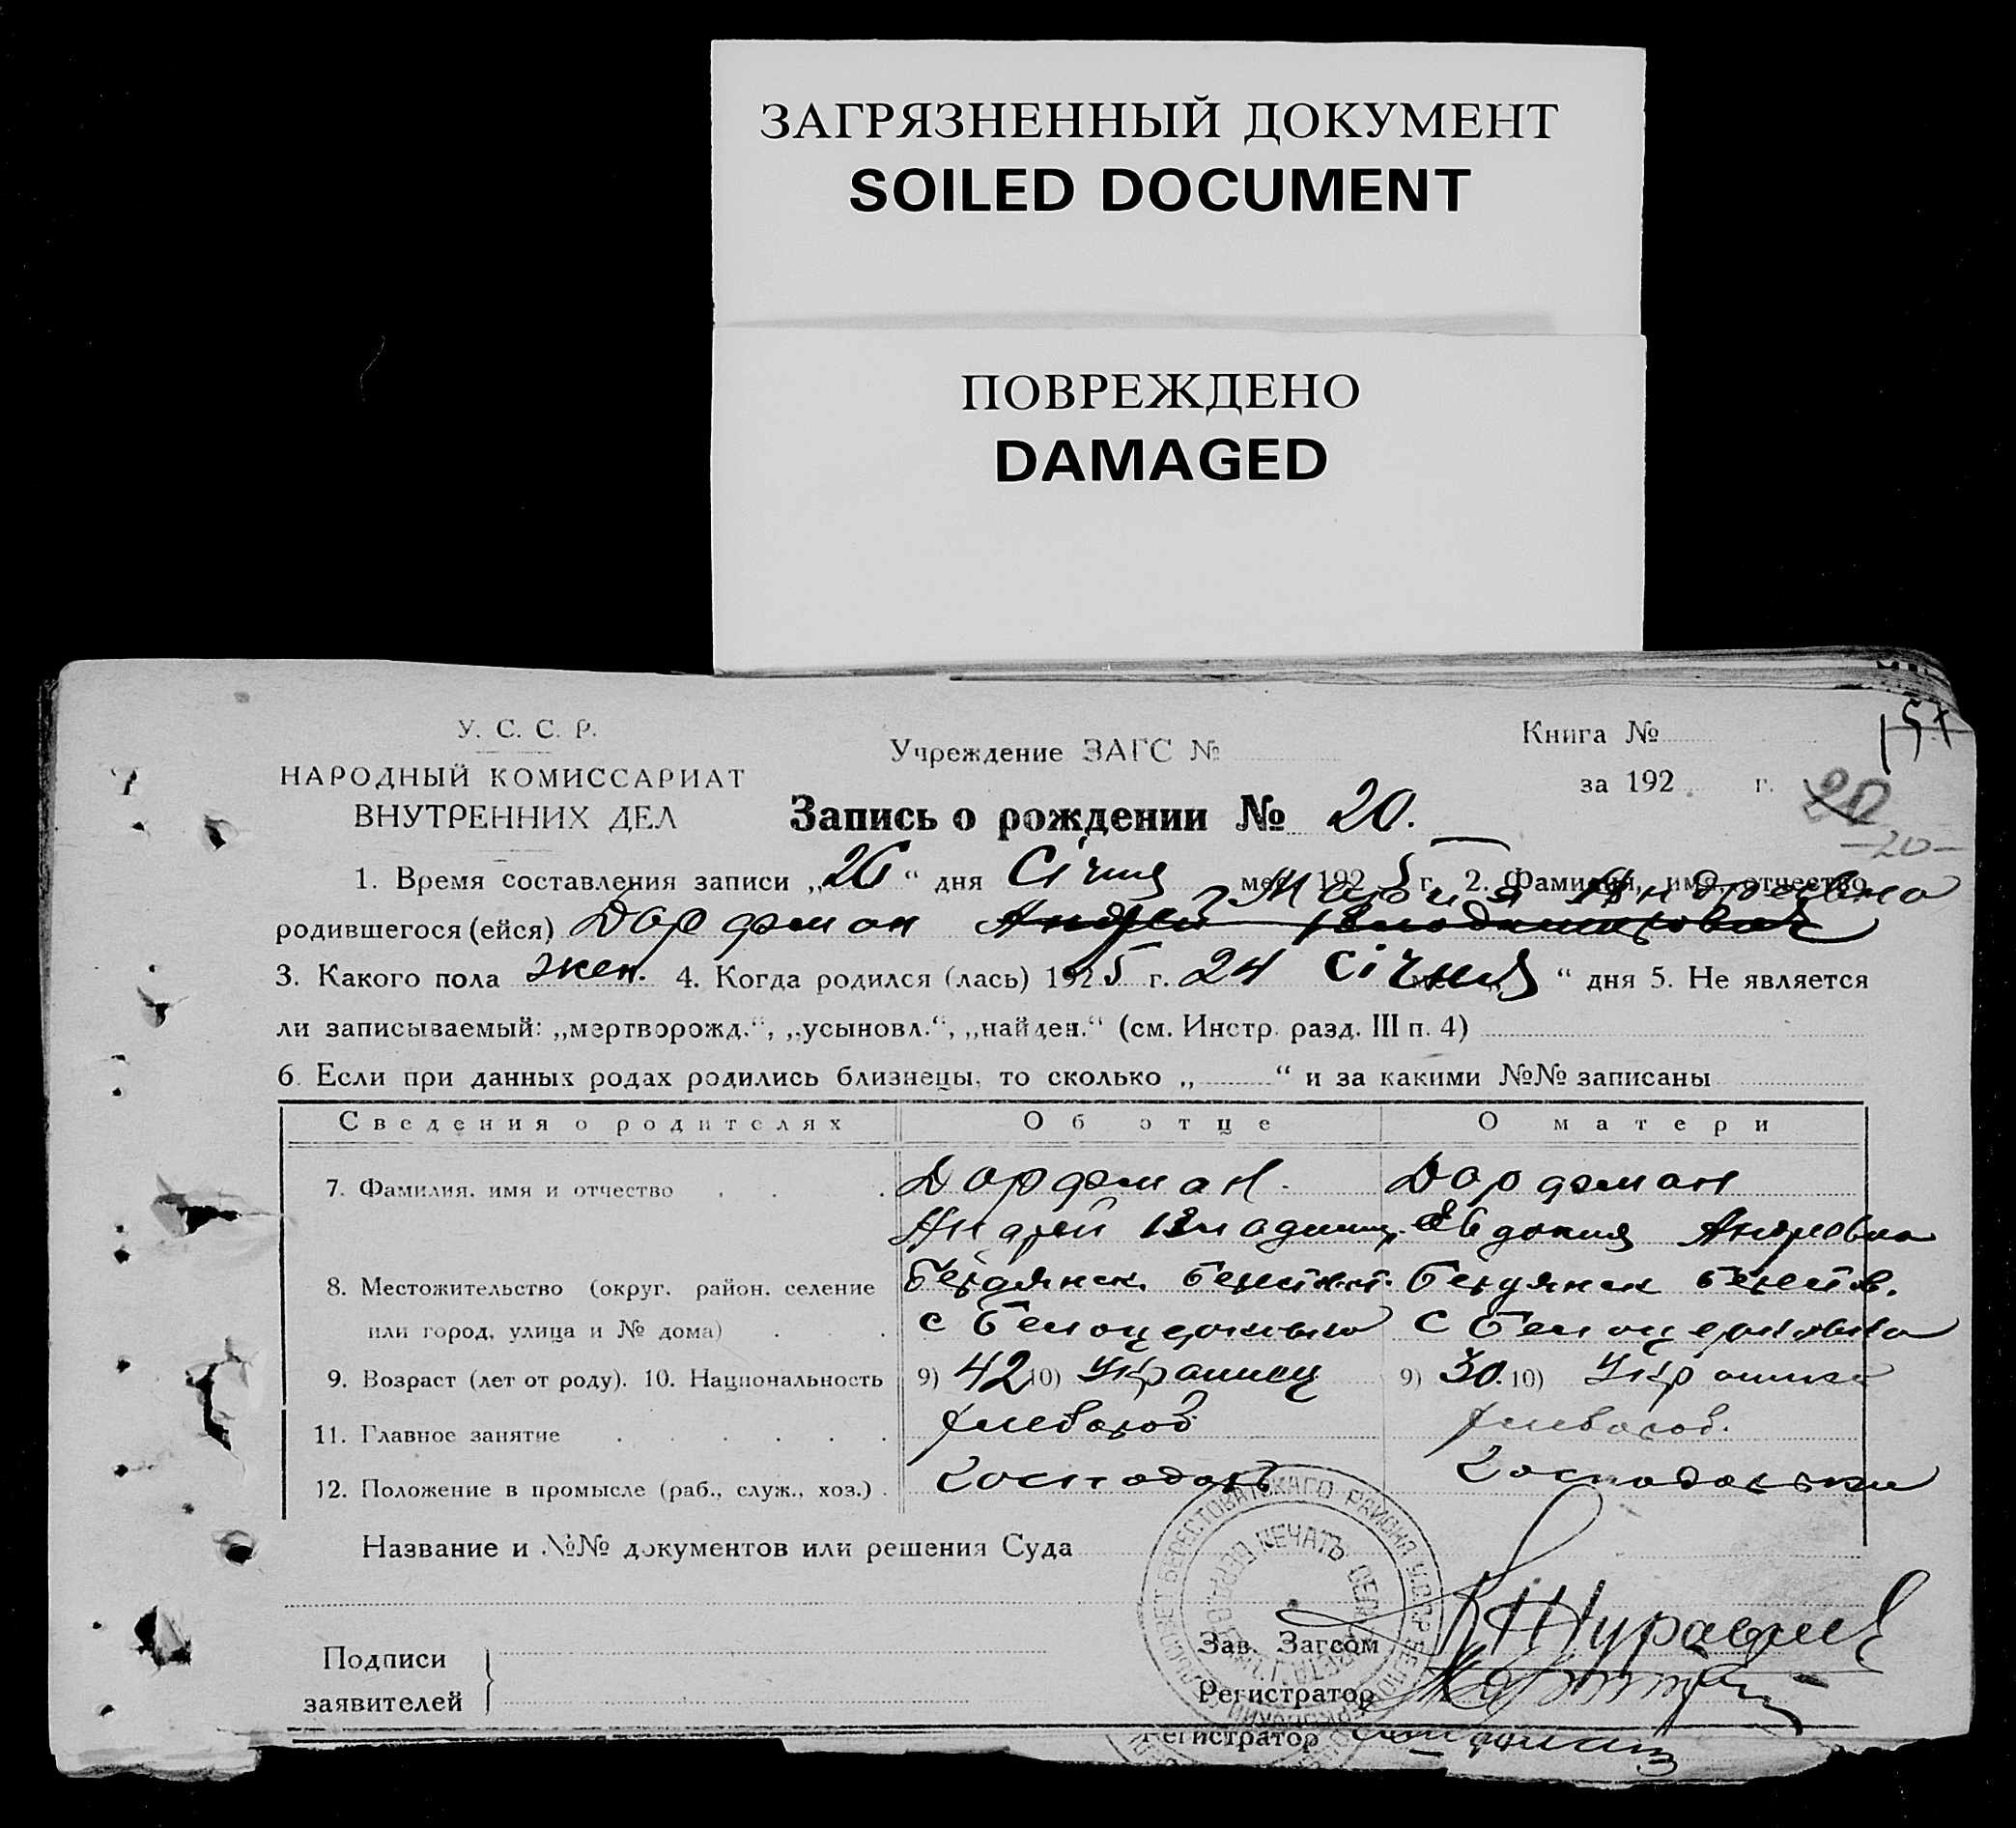 ЗАГРЯЗНЕННЫЙ ДОКУМЕНТ
SOILED DOCUMENT
ПОВРЕЖДЕНО
DAMAGED
У. С. С. Р.
НАРОДНЫЙ КОМИССАРИАТ
ВНУТРЕННИХ ДЕЛ
Учреждение ЗАГС №
Книга №
за 192 г.
20
-20-
Запись о рождении № 20.
1. Время составления записи „26“ дня Січня мес. 1925 г. 2. Фамилия, имя, отчество
Мария Андреевна
родившегося (ейся) Дорфман Андрей Владимирович
3. Какого пола жен. 4. Когда родился (лась) 1925 г. 24 Січня “ дня 5. Не является
ли записываемый: „мертворожд.“, „усыновл.“, „найден.“ (см. Инстр. разд. III п. 4)
6. Если при данных родах родились близнецы, то сколько „ “ и за какими №№ записаны
Сведения о родителях Об отце О матери
7. Фамилия, имя и отчество Дорфман Дорфман
Андрей Владимир. Евдокия Андреевна
8. Местожительство (округ, район, селение Бердянск. Берестов. Бердянск Берестов.
или город, улица и № дома) с Белоцерковка с Белоцерковка
9. Возраст (лет от роду). 10. Национальность 9) 42 10) Украинец 9) 30. 10) Украинка
11. Главное занятие хлебороб хлебороб.
12. Положение в промысле (раб., служ., хоз.) господарь господарька
Название и №№ документов или решения Суда
Подписи
заявителей
Зав. Загсом
Регистратор
Регистратор